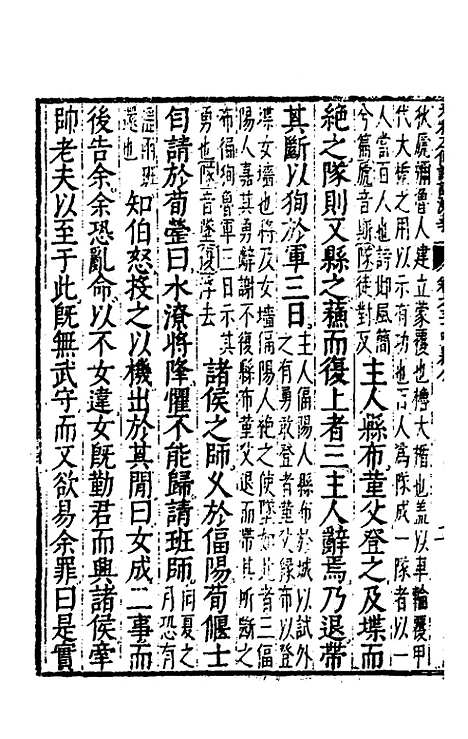 狄虒彌魯人建立蒙覆也櫓大楯也蓋以車輪覆甲
代大楯之用以示有功也百人為隊成一隊者以一
人當百人也詩邶風簡
兮篇虒音斯隊徒對反
主人縣布堇父登之及堞而
絶之隊則又縣之蘇而復上者三主人辭焉乃退帶
其斷以狥於軍三日
主人偪陽人縣布於城以試外
之有勇敢登者堇父緣布以登
堞女墻也將及女墻偪陽人絶之使墜如此者三偪
陽人嘉其勇辭謝不復縣布堇父退而帶其所斷之
布徧狥魯軍三日示其
勇也隊音墜復浮去
諸侯之師久於偪陽荀偃士
匄請於荀罃曰水潦將降懼不能歸請班師
向夏之
月恐有
淫雨班
還也
知伯怒投之以機出於其間曰女成二事而
後告余余恐亂命以不女違女既勤君而興諸侯牽
帥老夫以至于此既無武守而又欲易余罪曰是實